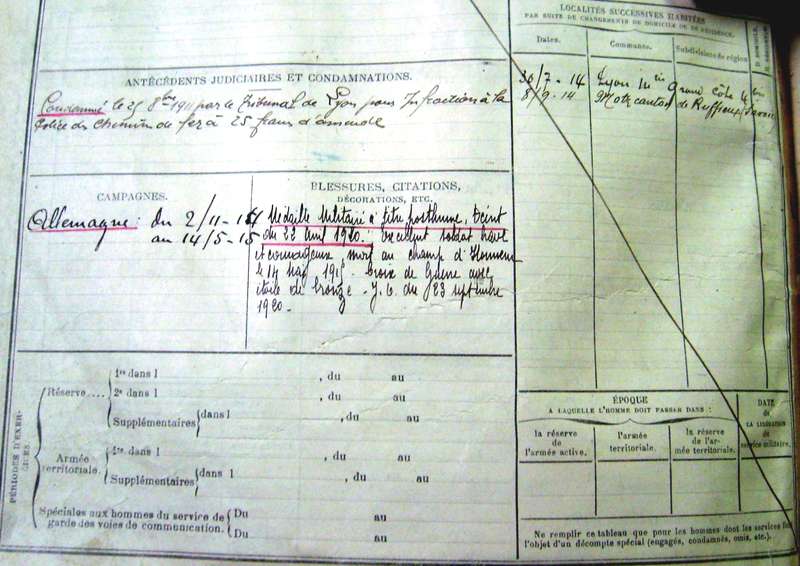 ANTÉCÉDENTS JUDICIAIRES ET CONDAMNATIONS.
Condamné le 25 8bre 1911 par le Tribunal de Lyon pour Infraction à la
Police des Chemins de fer à 25 francs d'amende
CAMPAGNES.
Allemagne: du 2/11-14
au 14/5-15
BLESSURES, CITATIONS,
DÉCORATIONS, ETC.
Médaille Militaire à titre posthume,
du 23 Avril 1920. Excellent soldat brave
et courageux mort au champ d'Honneur
le 14 Mai 1915. Croix de Guerre avec
étoile de bronze. J.O. du 23 septembre
1920.
LOCALITÉS SUCCESSIVES HABITÉES
PAR SUITE DE CHANGEMENTS DE DOMICILE OU DE RÉSIDENCE.
Dates.
Commune.
Subdivisions de région
30/7-14 Lyon Grande Côte
8/9-14 Motz canton de Ruffieux Savoie
PÉRIODES D'EXERCICES.
Réserve....
1re dans l , du au
2e dans l , du au
Supplémentaires dans l , du au
Armée
territoriale.
1re dans l , du au
Supplémentaires dans l , du au
Spéciales aux hommes du service de
garde des voies de communication.
Du au
Du au
ÉPOQUE
A LAQUELLE L'HOMME DOIT PASSER DANS :
la réserve
de
l'armée active.
l'armée
territoriale.
la réserve
de l'ar-
mée territoriale.
DATE
de
LA LIBÉRATION
du
service militaire.
Ne remplir ce tableau que pour les hommes dont les services
l'objet d'un décompte spécial (engagés, condamnés, omis, etc.).